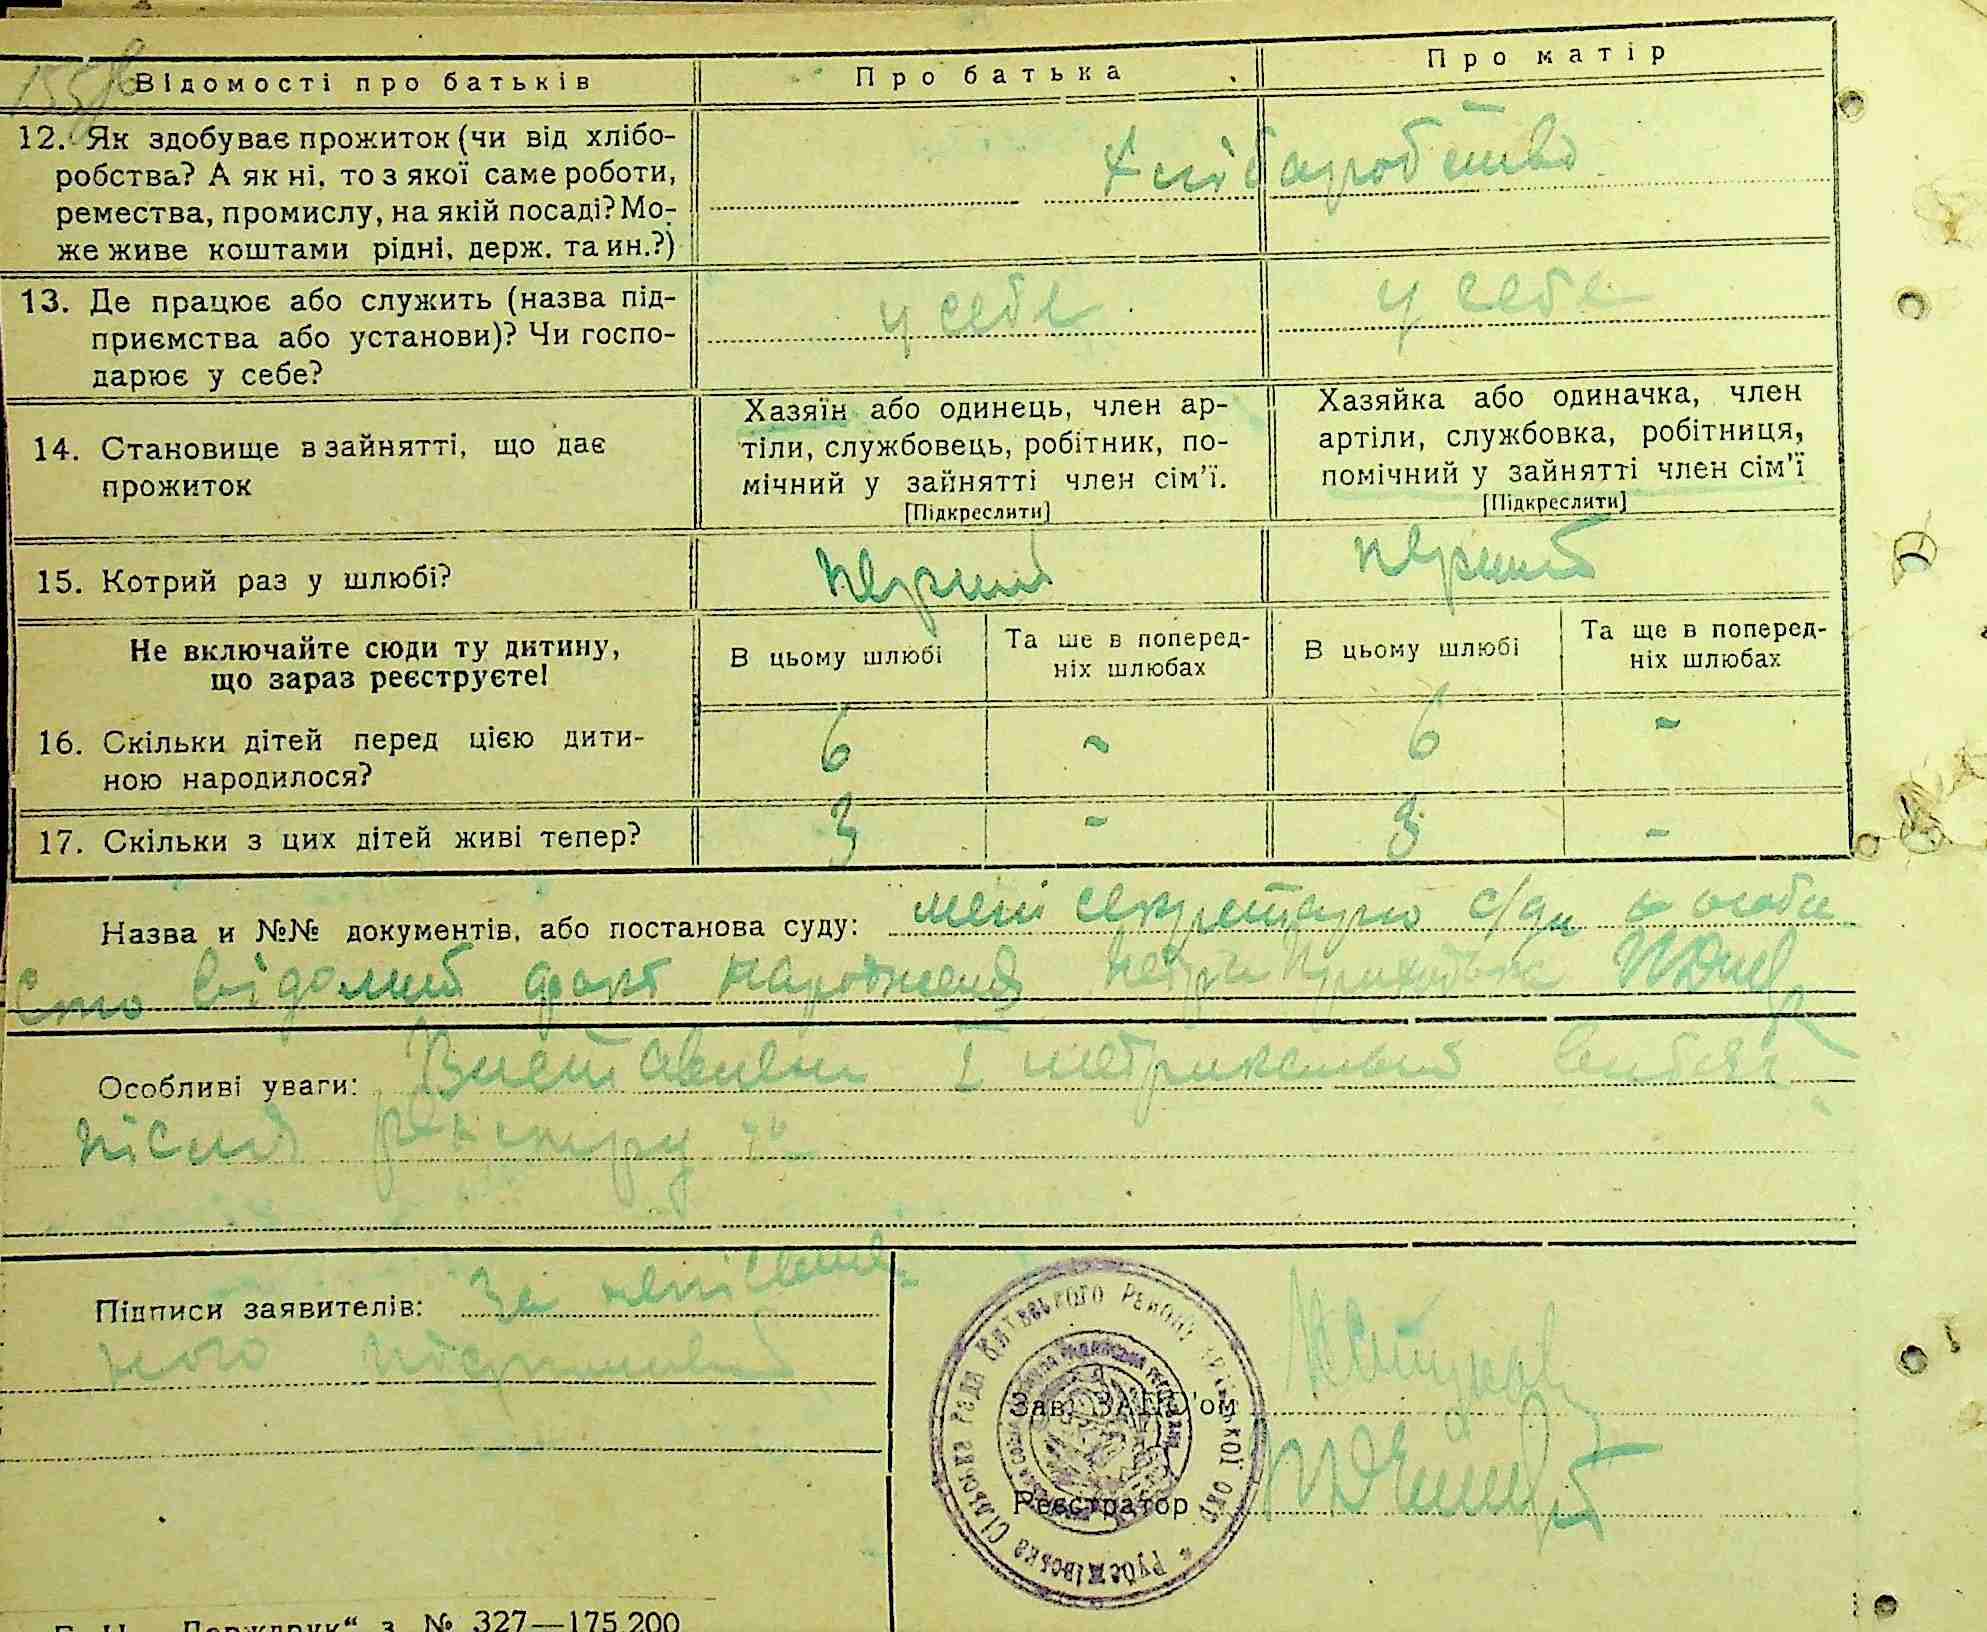 Відомості про батьків
Про батька
Про матір
12. Як здобуває прожиток (чи від хлібо-
робства? А як ні, то з якої саме роботи,
ремества, промислу, на якій посаді? Мо-
же живе коштами рідні, держ. та ин.?)
Хліборобство
13. Де працює або служить (назва під-
приємства або установи)? Чи госпо-
дарює у себе?
у себе
у себе
14. Становище в зайнятті, що дає
прожиток
Хазяїн або одинець, член ар-
тіли, службовець, робітник, по-
мічний у зайнятті член сім'ї.
[Підкреслити]
Хазяйка або одиначка, член
артіли, службовка, робітниця,
помічний у зайнятті член сім'ї
[Підкреслити]
15. Котрий раз у шлюбі?
перший
перший
Не включайте сюди ту дитину,
що зараз реєструєте!
В цьому шлюбі
Та ще в поперед-
ніх шлюбах
В цьому шлюбі
Та ще в поперед-
ніх шлюбах
16. Скільки дітей перед цією дити-
ною народилося?
6 - 6 -
17. Скільки з цих дітей живі тепер?
3 - 3 -
Назва и №№ документів, або постанова суду: мені секретарю с/ди особи
сто відомий факт народження
Особливі уваги:
після
Підписи заявителів: За
ного
Зав. ЗАГС'ом
Реєстратор
Рубежівська сільська рада Китвського району
„Держдрук“ з. № 327—175.200